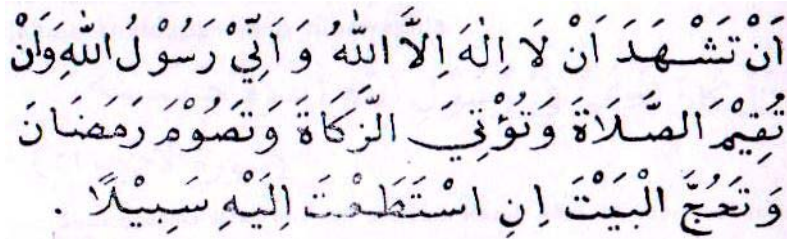 اَنْ تَشْهَدَ اَنْ لَا اِلٰهَ اِلَّا اللّٰهُ وَاَنِّيْ رَسُوْلُ اللّٰهِ وَاَنْ
تُقِيْمَ الصَّلَاةَ وَتُؤْتِيَ الزَّكَاةَ وَتَصُوْمَ رَمَضَانَ
وَتَحُجَّ الْبَيْتَ اِنِ اسْتَطَعْتَ اِلَيْهِ سَبِيْلًا .